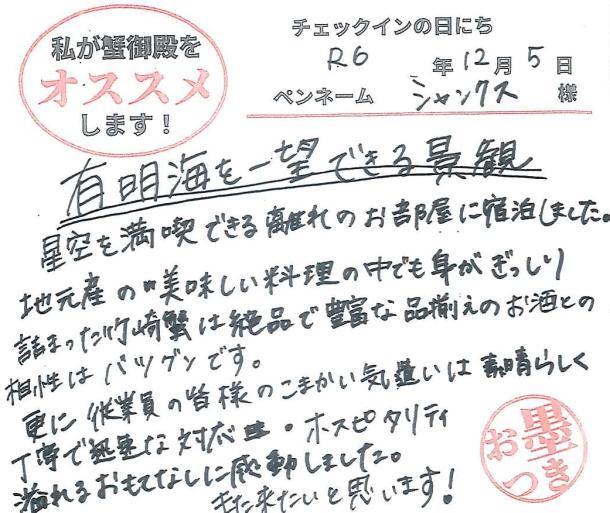 私が蟹御殿を
オススメ
します！
チェックインの日にち
R6年12月5日
ペンネーム シャンクス 様
有明海を一望できる景観
星空を満喫できる離れのお部屋に宿泊しました。
地元産の美味しい料理の中でも身がぎっしり
詰まった竹崎蟹は絶品で豊富な品揃えのお酒との
相性はバツグンです。
更に従業員の皆様のこまかい気遣いは素晴らしく
丁寧で迅速な対応・ホスピタリティ
溢れるおもてなしに感動しました。
また来たいと思います！
お墨つき